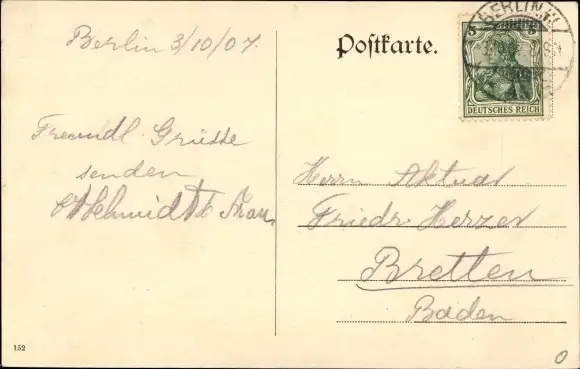 Berlin 3/10/07.
Postkarte.
BERLIN
5 5
DEUTSCHES REICH
Freundl. Grüsse
senden
Schmidt
Herrn Aktuar
Friedr. Herzer
Bretten
Baden
152